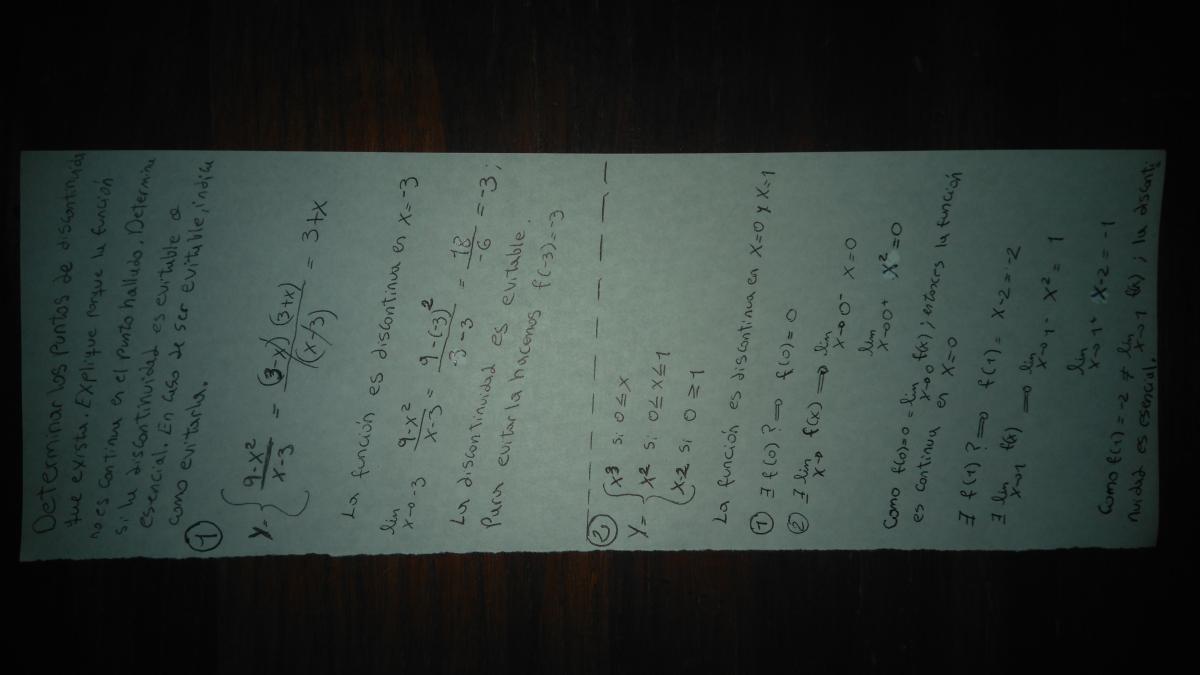 Determinar los puntos de discontinuida
que exista. Explique porque la función
no es continua en el punto hallado. Determine
si la discontinuidad es evitable o
esencial. En caso de ser evitable, indique
como evitarla.
①
y = { 9-x² / x-3 = (3-x)(3+x) / (x-3) = 3+x
La función es discontinua en x=-3
lim x→-3 9-x² / x-3 = 9-(-3)² / -3-3 = 18 / -6 = -3;
La discontinuidad es evitable.
Para evitarla hacemos f(-3)=-3
②
y = { x³ si 0≤x
x² si 0≤x≤1
x-2 si 0≥1
La función es discontinua en x=0 y x=1
① ∃ f(0)? ⇒ f(0)=0
② ∃ lim x→0 f(x) ⇒ lim x→0⁻ x=0
lim x→0⁺ x²=0
Como f(0)=0=lim x→0 f(x); entonces la función
es continua en x=0
∃ f(1)? ⇒ f(1)= x-2=-2
∃ lim x→1 f(x) ⇒ lim x→1⁻ x²=1
lim x→1⁺ x-2=-1
Como f(1)=-2 ≠ lim x→1 f(x); la disconti-
nuidad es esencial.